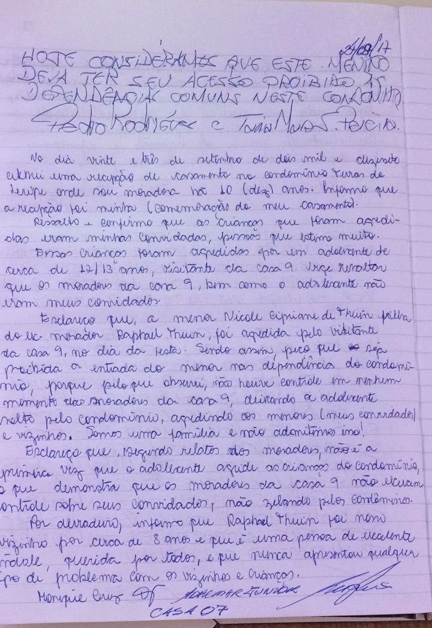 24/09/17
HOJE CONSIDERAMOS QUE ESTE MENINO
DEVA TER SEU ACESSO PROIBIDO ÀS
DEPENDÊNCIAS COMUNS NESTE CONDOMÍNIO
Pedro Rodrigues e
No dia vinte e três de setembro de dois mil e dezesete
uma recepção de casamento no condomínio
onde sou moradora há 10 (dez) anos. Informo que
a recepção foi minha (comemoração do meu casamento).
Ressalto e confirmo que as crianças que foram agredi-
das eram minhas convidadas, pessoas que estimo muito.
Essas crianças foram agredidas por um adolescente de
cerca de 12/13 anos, visitante da casa 9. Urge ressaltar
que os moradores da casa 9, bem como o adolescente não
eram meus convidados.
Esclareço que, a menor Nicole Cipriano de Thuin filha
do ex-morador Raphael Thuin, foi agredida pelo visitante
da casa 9, no dia da festa. Sendo assim, peço que seja
proibida a entrada do menor nas dependência do condomí-
nio, porque pelo que observei, não houve controle em nenhum
momento dos moradores da casa 9, deixando o adolescente
solto pelo condomínio, agredindo os menores (meus convidados)
e vizinhos. Somos uma família e não admitimos isso!
Esclareço que, segundo relatos dos moradores, não é a
primeira vez que o adolescente agride as crianças do condomínio,
o que demonstra que os moradores da casa 9 não
controle sobre seus convidados, não zelando pelos condôminos.
Por derradeiro, informo que Raphael Thuin foi nosso
vizinho por cerca de 8 anos e que é uma pessoa de excelente
índole, querida por todos, e que nunca apresentou qualquer
tipo de problema com os vizinhos e crianças.
Monique Cruz
CASA 07